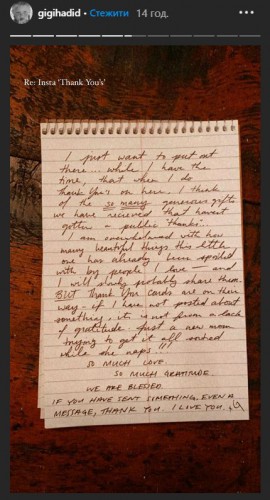 gigihadid • Стежити 14 год.
Re: Insta 'Thank You's'
I just want to put out
there... while I have the
time, that when I do
thank you's on here, I think
of the so many generous gifts
we have recieved that havent
gotten a public 'thanks'...
I am overwhelmed with how
many beautiful things this little
one has already been spoiled
with by people I love — and
I will slowly probably share them.
BUT Thank You cards are on their
way - if I have not posted about
something, its is not from a lack
of gratitude. Just a new mom
trying to get it all sorted
while she naps...!!!
SO MUCH LOVE.
SO MUCH GRATITUDE.
WE ARE BLESSED.
IF YOU HAVE SENT SOMETHING, EVEN A
MESSAGE, THANK YOU. I LOVE YOU.